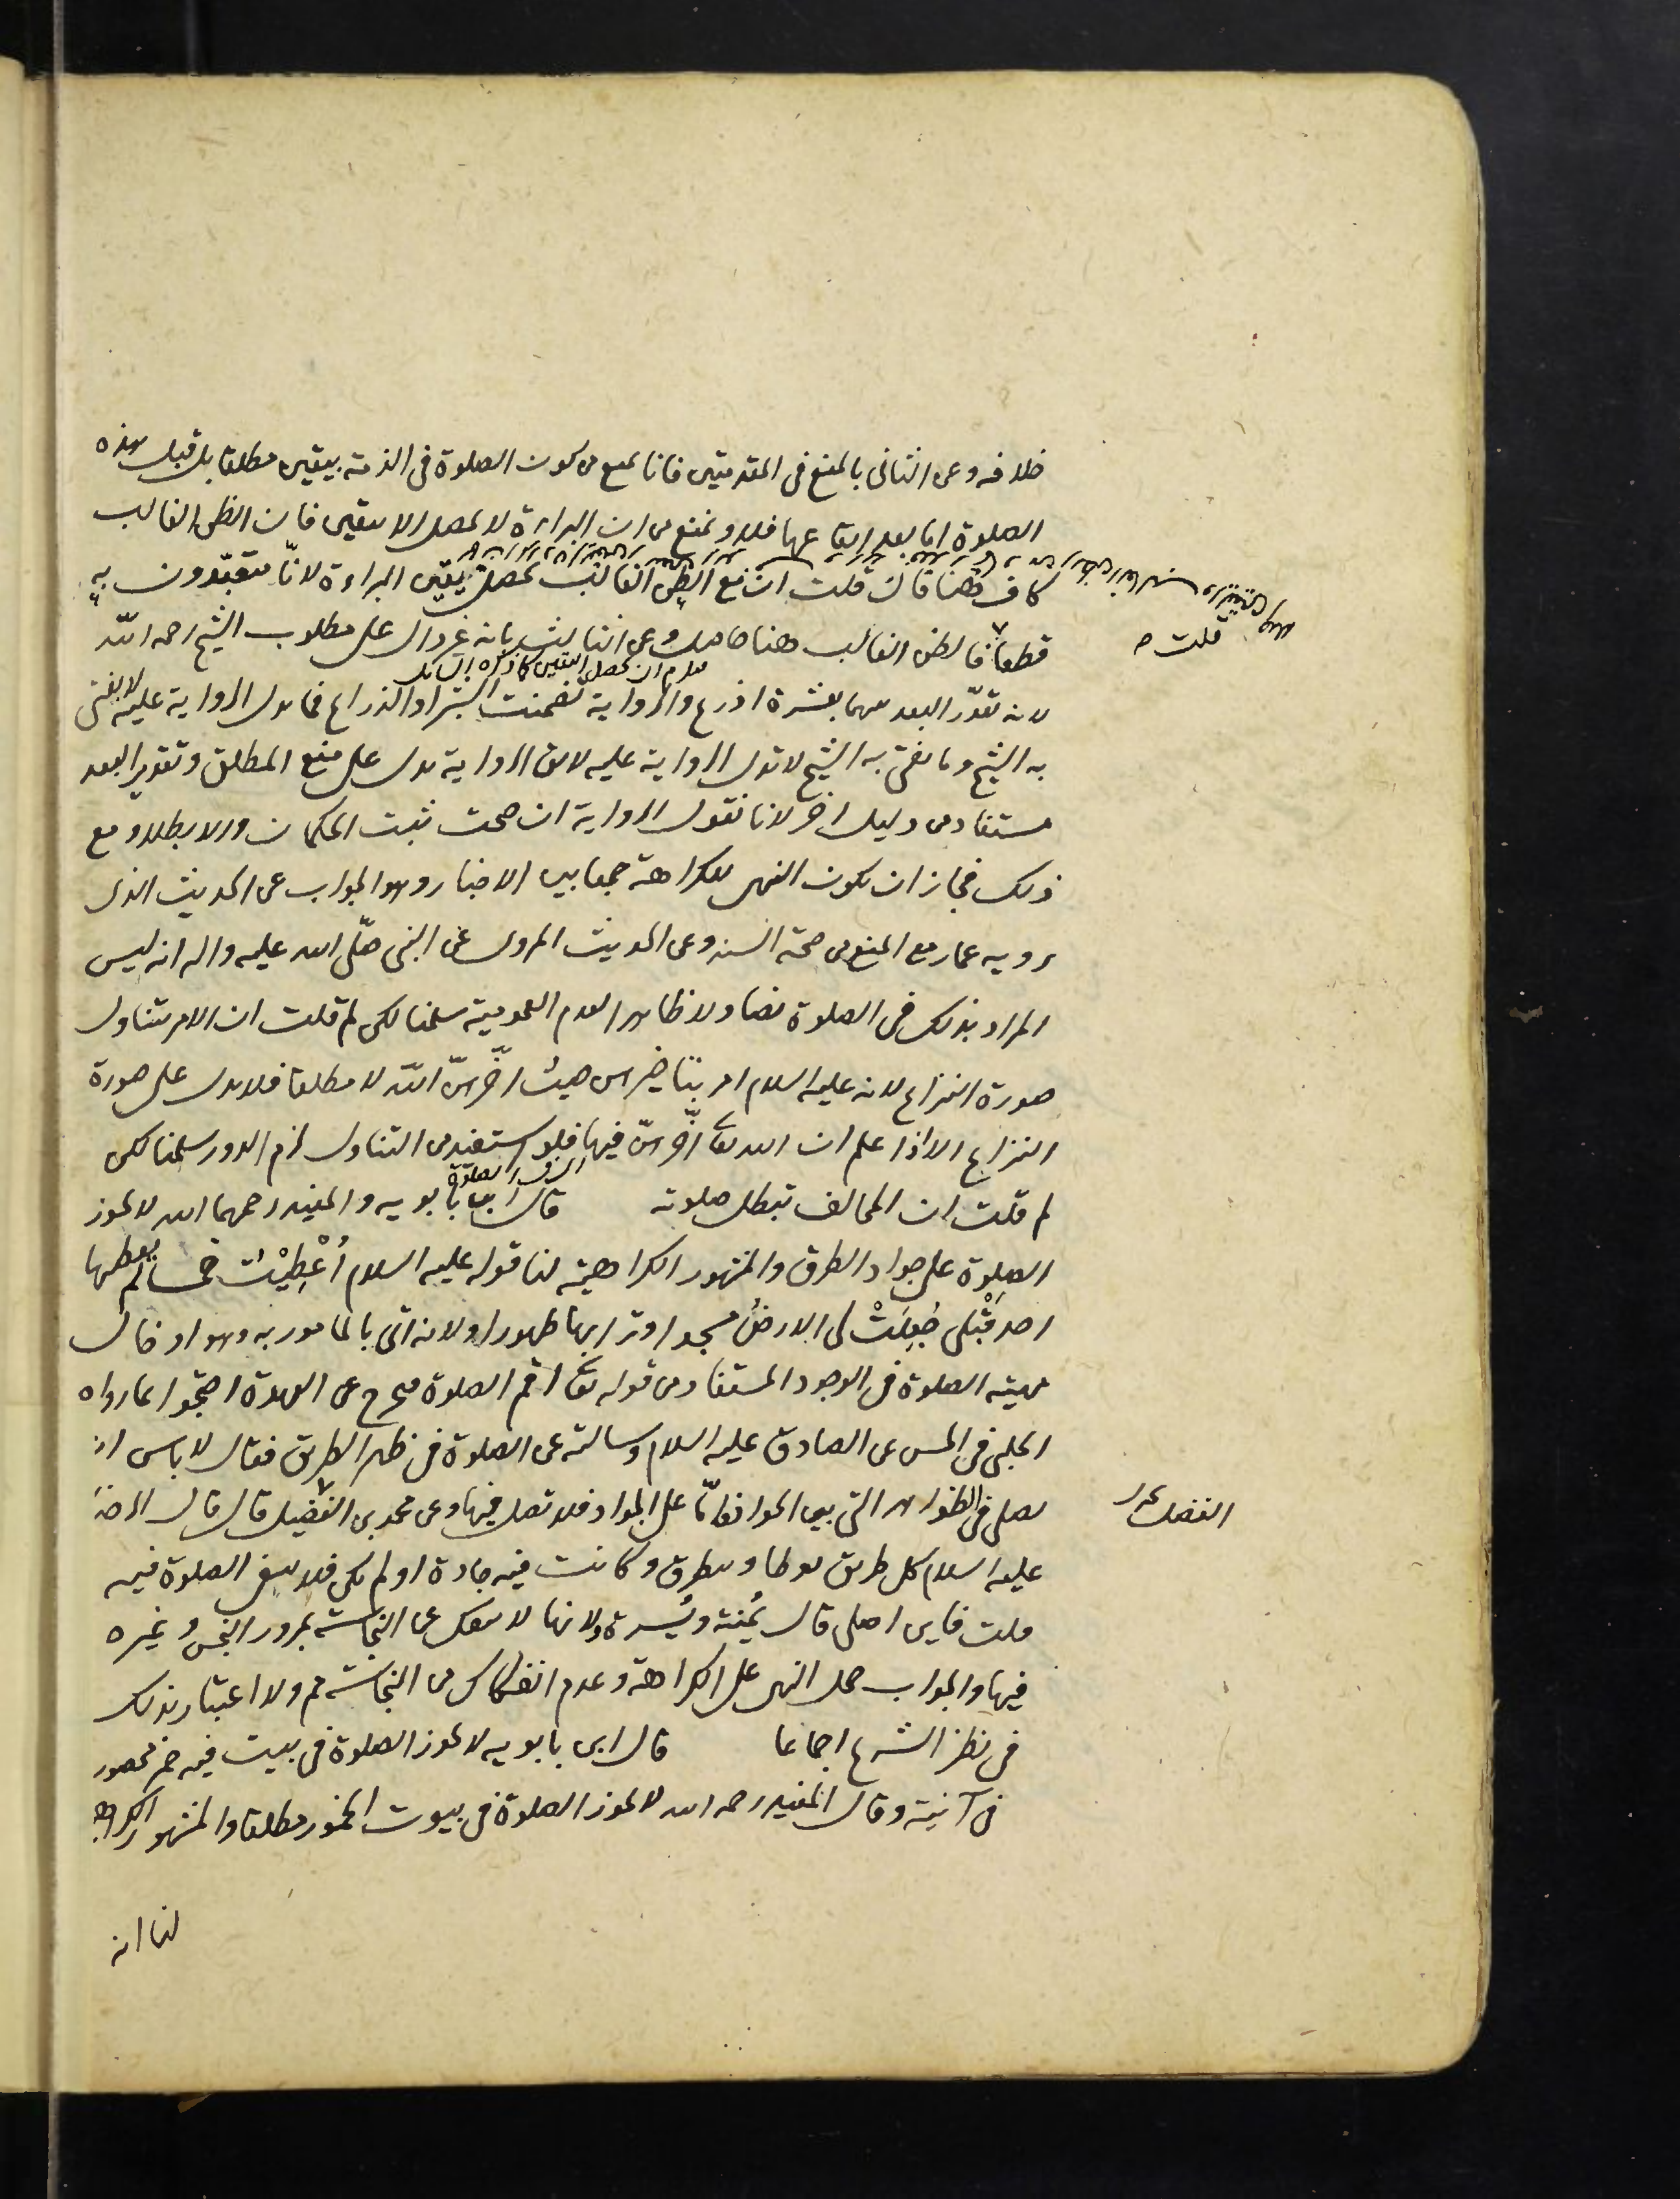 خلافه وعن الثانى بالمنع فى المقدمتين فانا نمنع من كون الصلوة فى الذمة بيقين مطلقا بل قبل هذه
الصلوة اما بعد ايقاعها فلا ونمنع من ان البراءة لا تحصل الا بيقين فان الظن الغالب
كاف هنا فان قلت ان مع الظن الغالب تحصل يقين البراءة لانا متعبدون به
قطعا فالظن الغالب هنا حاصل وعن الثالث بانه غير دال على مطلوب الشيخ رحمه الله
قلت
لانه تقدر البعد بينهما بعشرة اذرع والرواية تضمنت الشبر او الذراع فما تدل الرواية عليه لا يفتى
به الشيخ وما يفتى به الشيخ لا تدل الرواية عليه لا يق الرواية تدل على منع المطلق وتقدير البعد
مستفاد من دليل اخر لانا نقول الرواية ان صحت ثبت الحكمان والا بطلا ومع
ذلك فجاز ان يكون النهى للكراهة جمعا بين الاخبار وهو الجواب عن الحديث الذى
يرويه عمار مع المنع من صحة السند وعن الحديث المروى عن النبى صلّى الله عليه واله انه ليس
المراد بذلك فى الصلوة نصا ولا ظاهرا لعدم العمومية سلمنا لكن لم قلت ان الامر يتناول
صورة النزاع لانه عليه السلام امر بتاخيرهن حيث اخّرهنّ الله لا مطلقا فلا يدل على صورة
النزاع الا اذا علم ان الله تعا اخّرهنّ فيها فلو استفيد من التناول لزم الدور سلمنا لكن
لم قلت ان المخالف تبطل صلوته قال ابنا بابويه والمفيد رحمهما الله لا تجوز
الصلوة على جواد الطرق والمشهور الكراهية لنا قوله عليه السلام أُعْطِيْتُ خمسا لم يعطها
احد قَبْلى جُعِلَتْ لى الارضُ مسجدا وترابها طهورا ولانه اتى بالمامور به وهو ادخال
ماهيته الصلوة فى الوجود المستفاد من قوله تعا اقم الصلوة فيخرج عن العهدة احتجوا بما رواه
الحلبى فى الحسن عن الصادق عليه السلام وسالته عن الصلوة فى ظهر الطريق فقال لا باس ان
تصلى فى الظواهر التى بين الجواد فامّا على الجواد فلا تصل فيها وعن محمد بن الفضيل قال قال الرضا
الفضل
عليه السلام كل طريق يوطا ويتطرق وكانت فيه جادة او لم تكن فلا ينبغى الصلوة فيه
قلت فاين اصلى قال يُمنة ويُسرة ولانها لا تنفك عن النجاسة بمرور النجس وغيره
فيها والجواب حمل النهى على الكراهة وعدم انفكاك من النجاسة مم ولا اعتبار بذلك
فى نظر الشرع اجماعا قال ابن بابويه لا تجوز الصلوة فى بيت فيه خمر محصور
فى آنية وقال المفيد رحمه الله لا تجوز الصلوة فى بيوت الخمور مطلقا والمشهور الكراهية
لنا انه